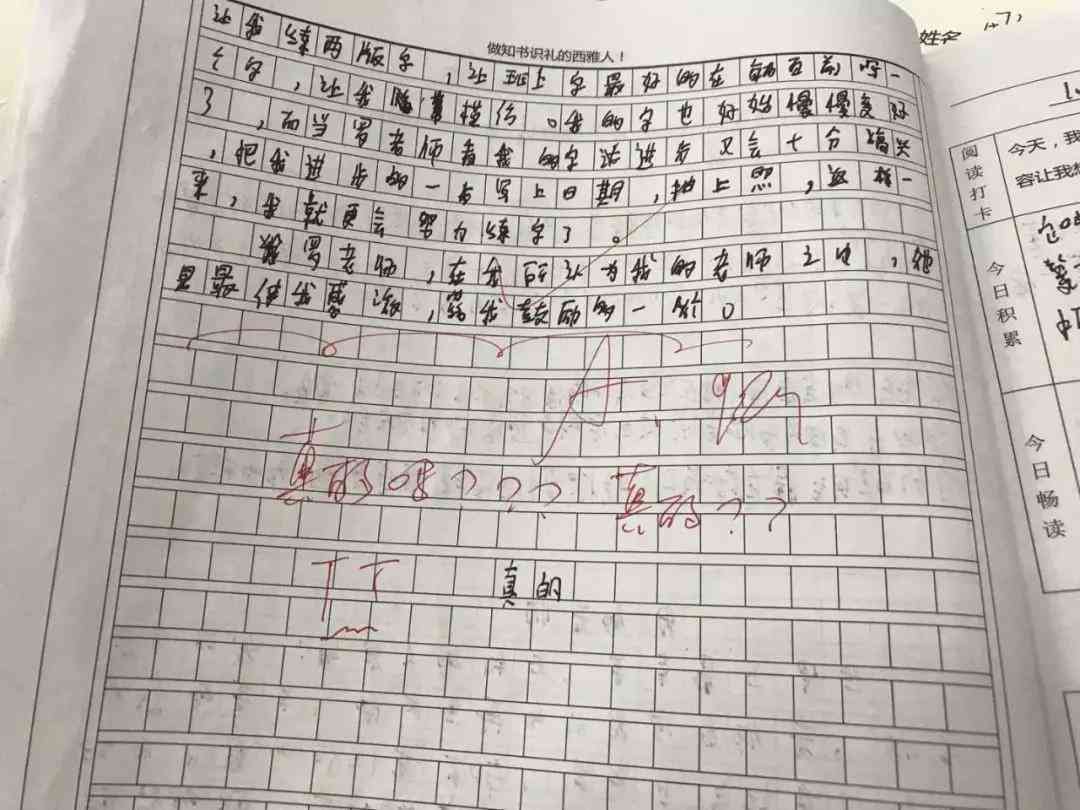 做知书识礼的西雅人！
让我练两版字，让班上字最好的在每页前写一
个字，让我临摹模仿。我的字也好始慢慢变好
了，而当罗老师看我的字进步又会十分高兴
，把我进步的一写上日期，拍上照，这样一
来，我就更会努力练字了。
罗老师，在我所认为我的老师之中，她
是最使我感激，给我鼓励的一个。
A
真的吗？？？ 真的？？
TT 真的
姓名
阅读打卡
今天，我
容让我想
今日积累
今日畅读